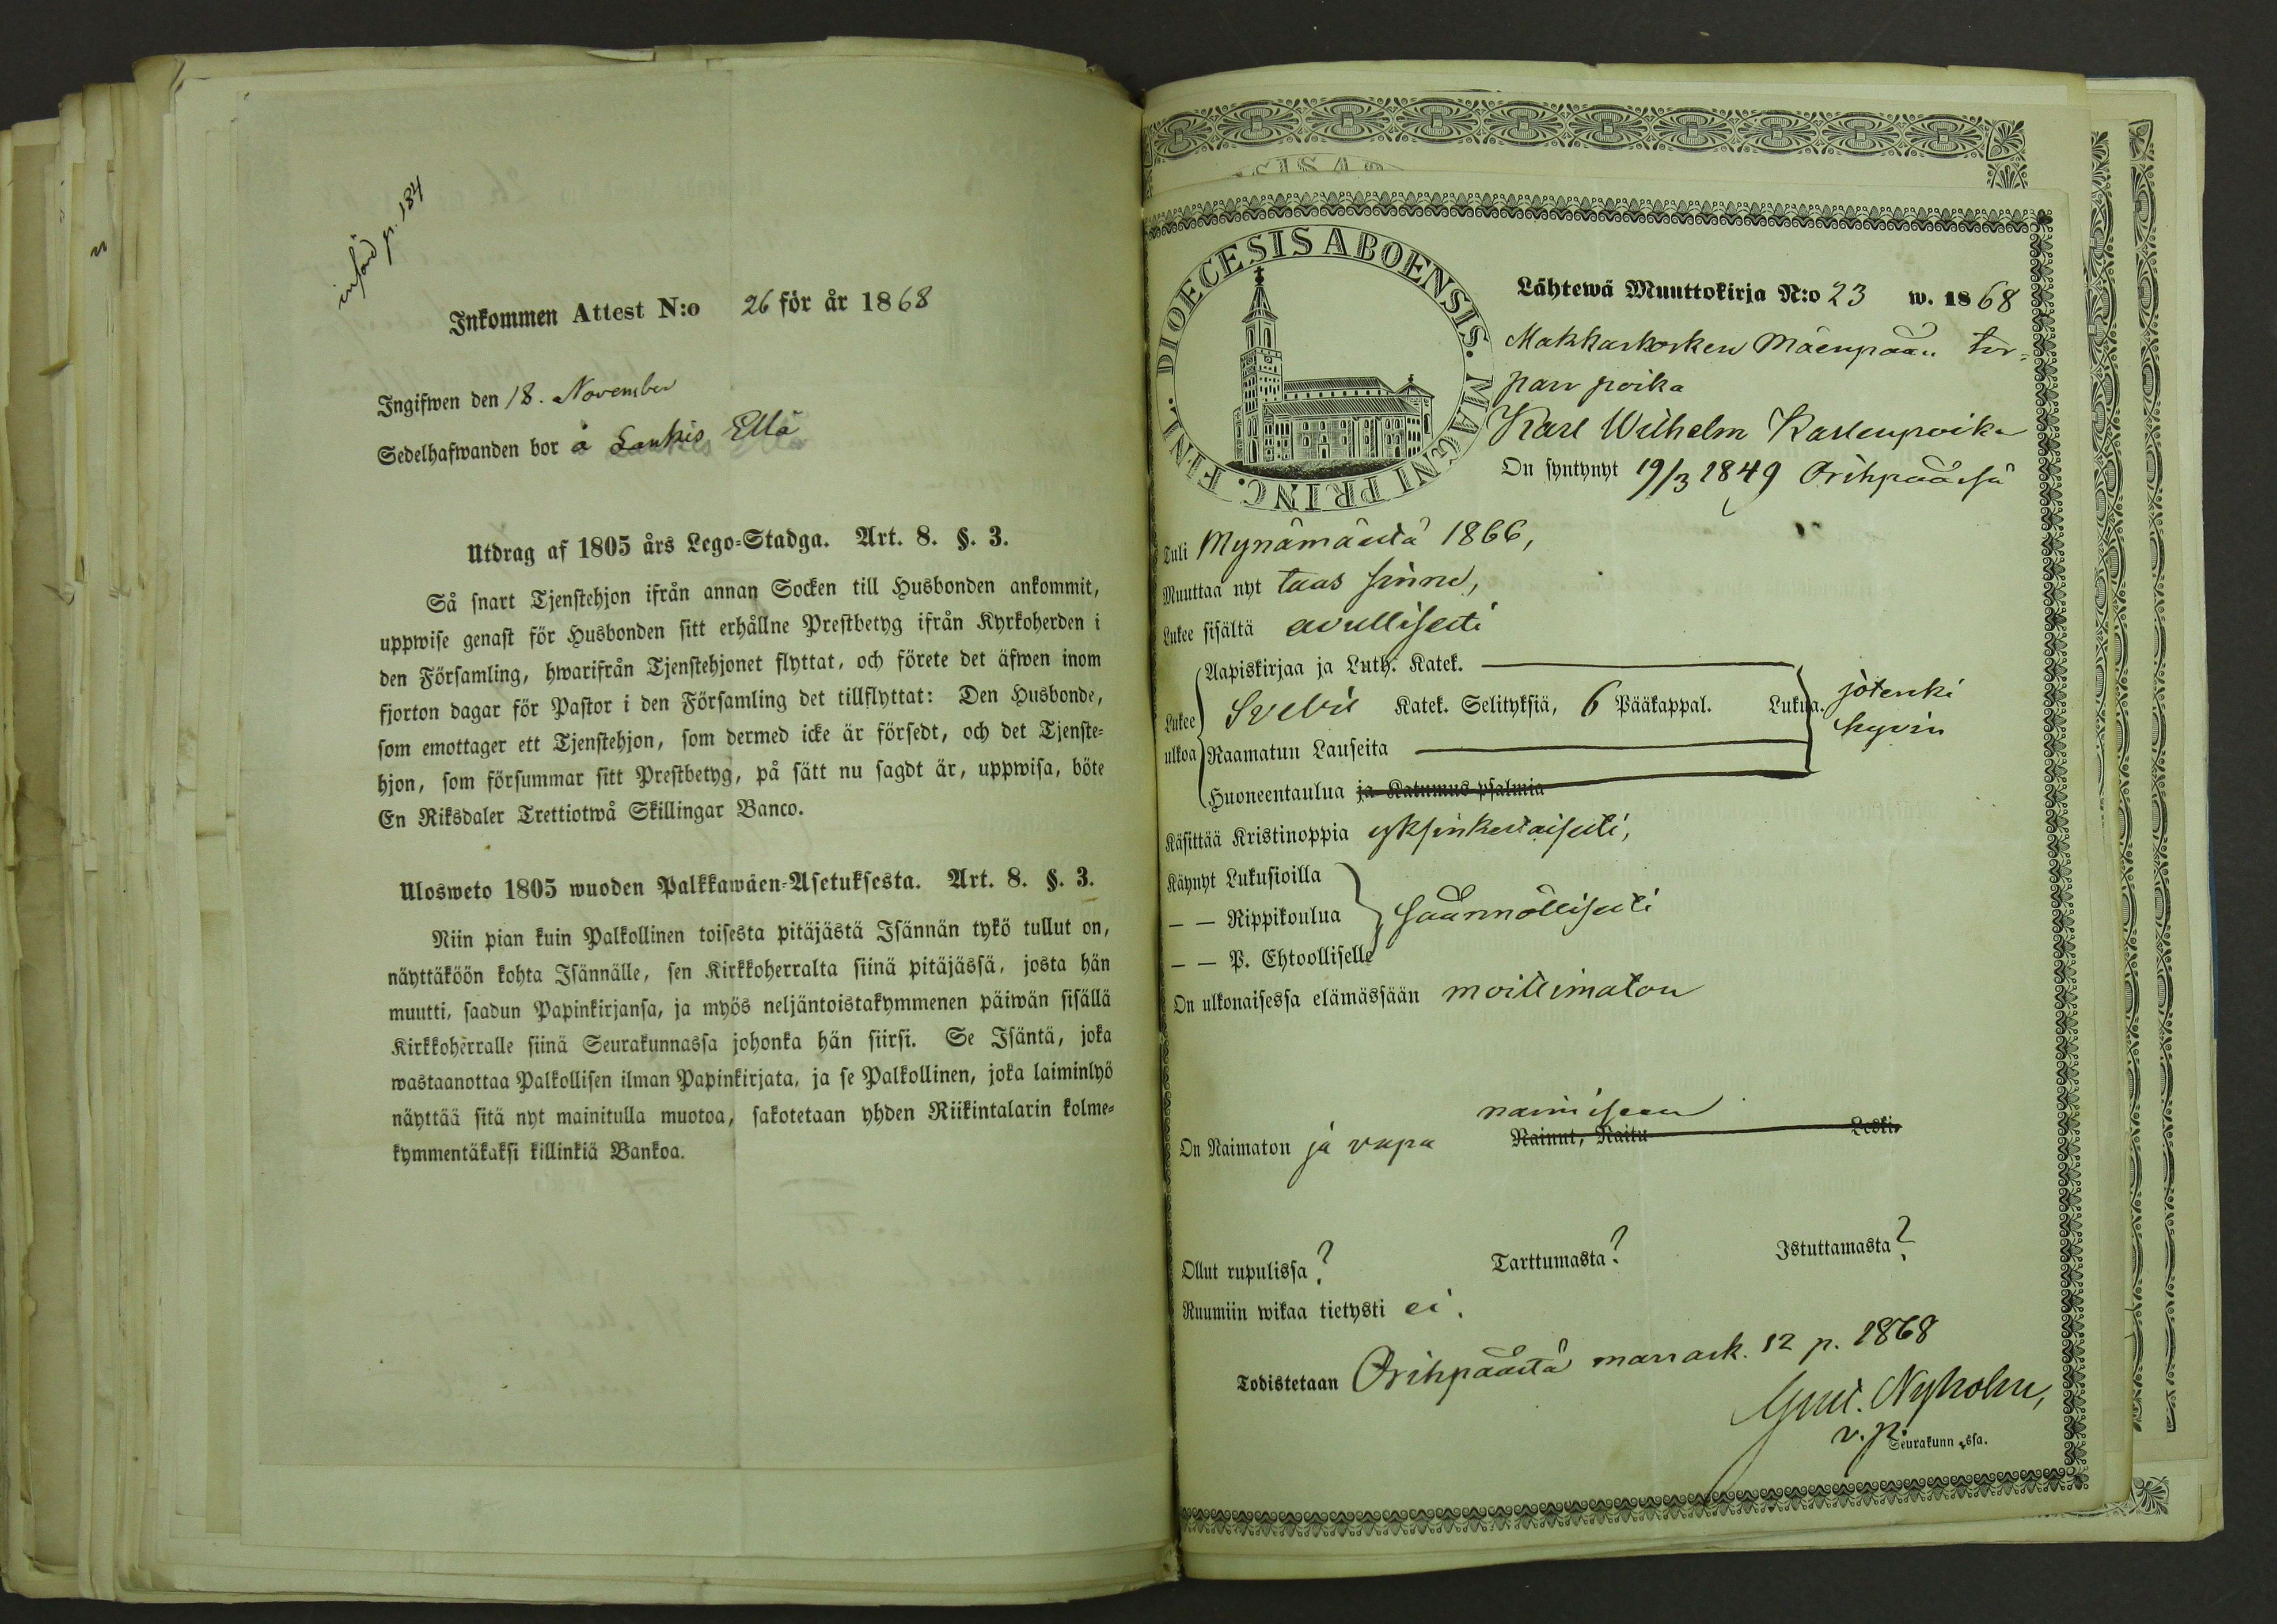 införd p. 184
Inkommen Attest N:o 26 för år 1868
Ingifwen den 18. November
Sedelhafwanden bor å Laukis Ellä
Utdrag af 1805 års Lego=Stadga. Art. 8. §. 3.
Så snart Tjenstehjon ifrån annan Socken till Husbonden ankommit,
uppwise genast för Husbonden sitt erhållne Prestbetyg ifrån Kyrkoherden i
den Församling, hwarifrån Tjenstehjonet flyttat, och förete det äfwen inom
fjorton dagar för Pastor i den Församling det tillflyttat: Den Husbonde,
som emottager ett Tjenstehjon, som dermed icke är försedt, och det Tjenste=
hjon, som försummar sitt Prestbetyg, på sätt nu sagdt är, uppwisa, böte
En Riksdaler Trettiotwå Skillingar Banco.
Ulosweto 1805 wuoden Palkkawäen=Asetuksesta. Art. 8. §. 3.
Niin pian kuin Palkollinen toisesta pitäjästä Isännän tykö tullut on,
näyttäköön kohta Isännälle, sen Kirkkoherralta siinä pitäjässä, josta hän
muutti, saadun Papinkirjansa, ja myös neljäntoistakymmenen päiwän sisällä
Kirkkoherralle siinä Seurakunnassa johonka hän siirsi. Se Isäntä, joka
wastaanottaa Palkollisen ilman Papinkirjata, ja se Palkollinen, joka laiminlyö
näyttää sitä nyt mainitulla muotoa, sakotetaan yhden Riikintalarin kolme=
kymmentäkaksi killinkiä Bankoa.
DIOECESIS ABOENSIS. MAGNI PRINC. FINL.
Lähtewä Muuttokirja N:o 23 w. 1868
Makkarkosken Mäenpään tor=
parr poika
Karl Wilhelm Karlenpoika
On syntynyt 19/3 1849 Orihpäässä
Tuli Mynämäestä 1866,
Muuttaa nyt taas sinne,
Lukee sisältä avullisesti
Aapiskirjaa ja Luth. Katek.
Lukee ulkoa
Svebil Katek. Selityksiä, 6 Pääkappal. Lukua. jotenki
hyvin
Raamatun Lauseita
Huoneentaulua ja Katumus psalmia
Käsittää Kristinoppia yksinkertaisesti,
Käynyt Lukusioilla
— — Rippikoulua säännöllisesti
— — P. Ehtoolliselle
On ulkonaisessa elämässään moittimaton
naimiseen
On Naimaton ja vapa Nainut, Naitu Leski.
Ollut rupulissa? Tarttumasta? Istuttamasta?
Ruumiin wikaa tietysti ei.
Todistetaan Orihpäästä marrask. 12 p. 1868
Gust. Nyholm,
v. p. Seurakunn ssa.